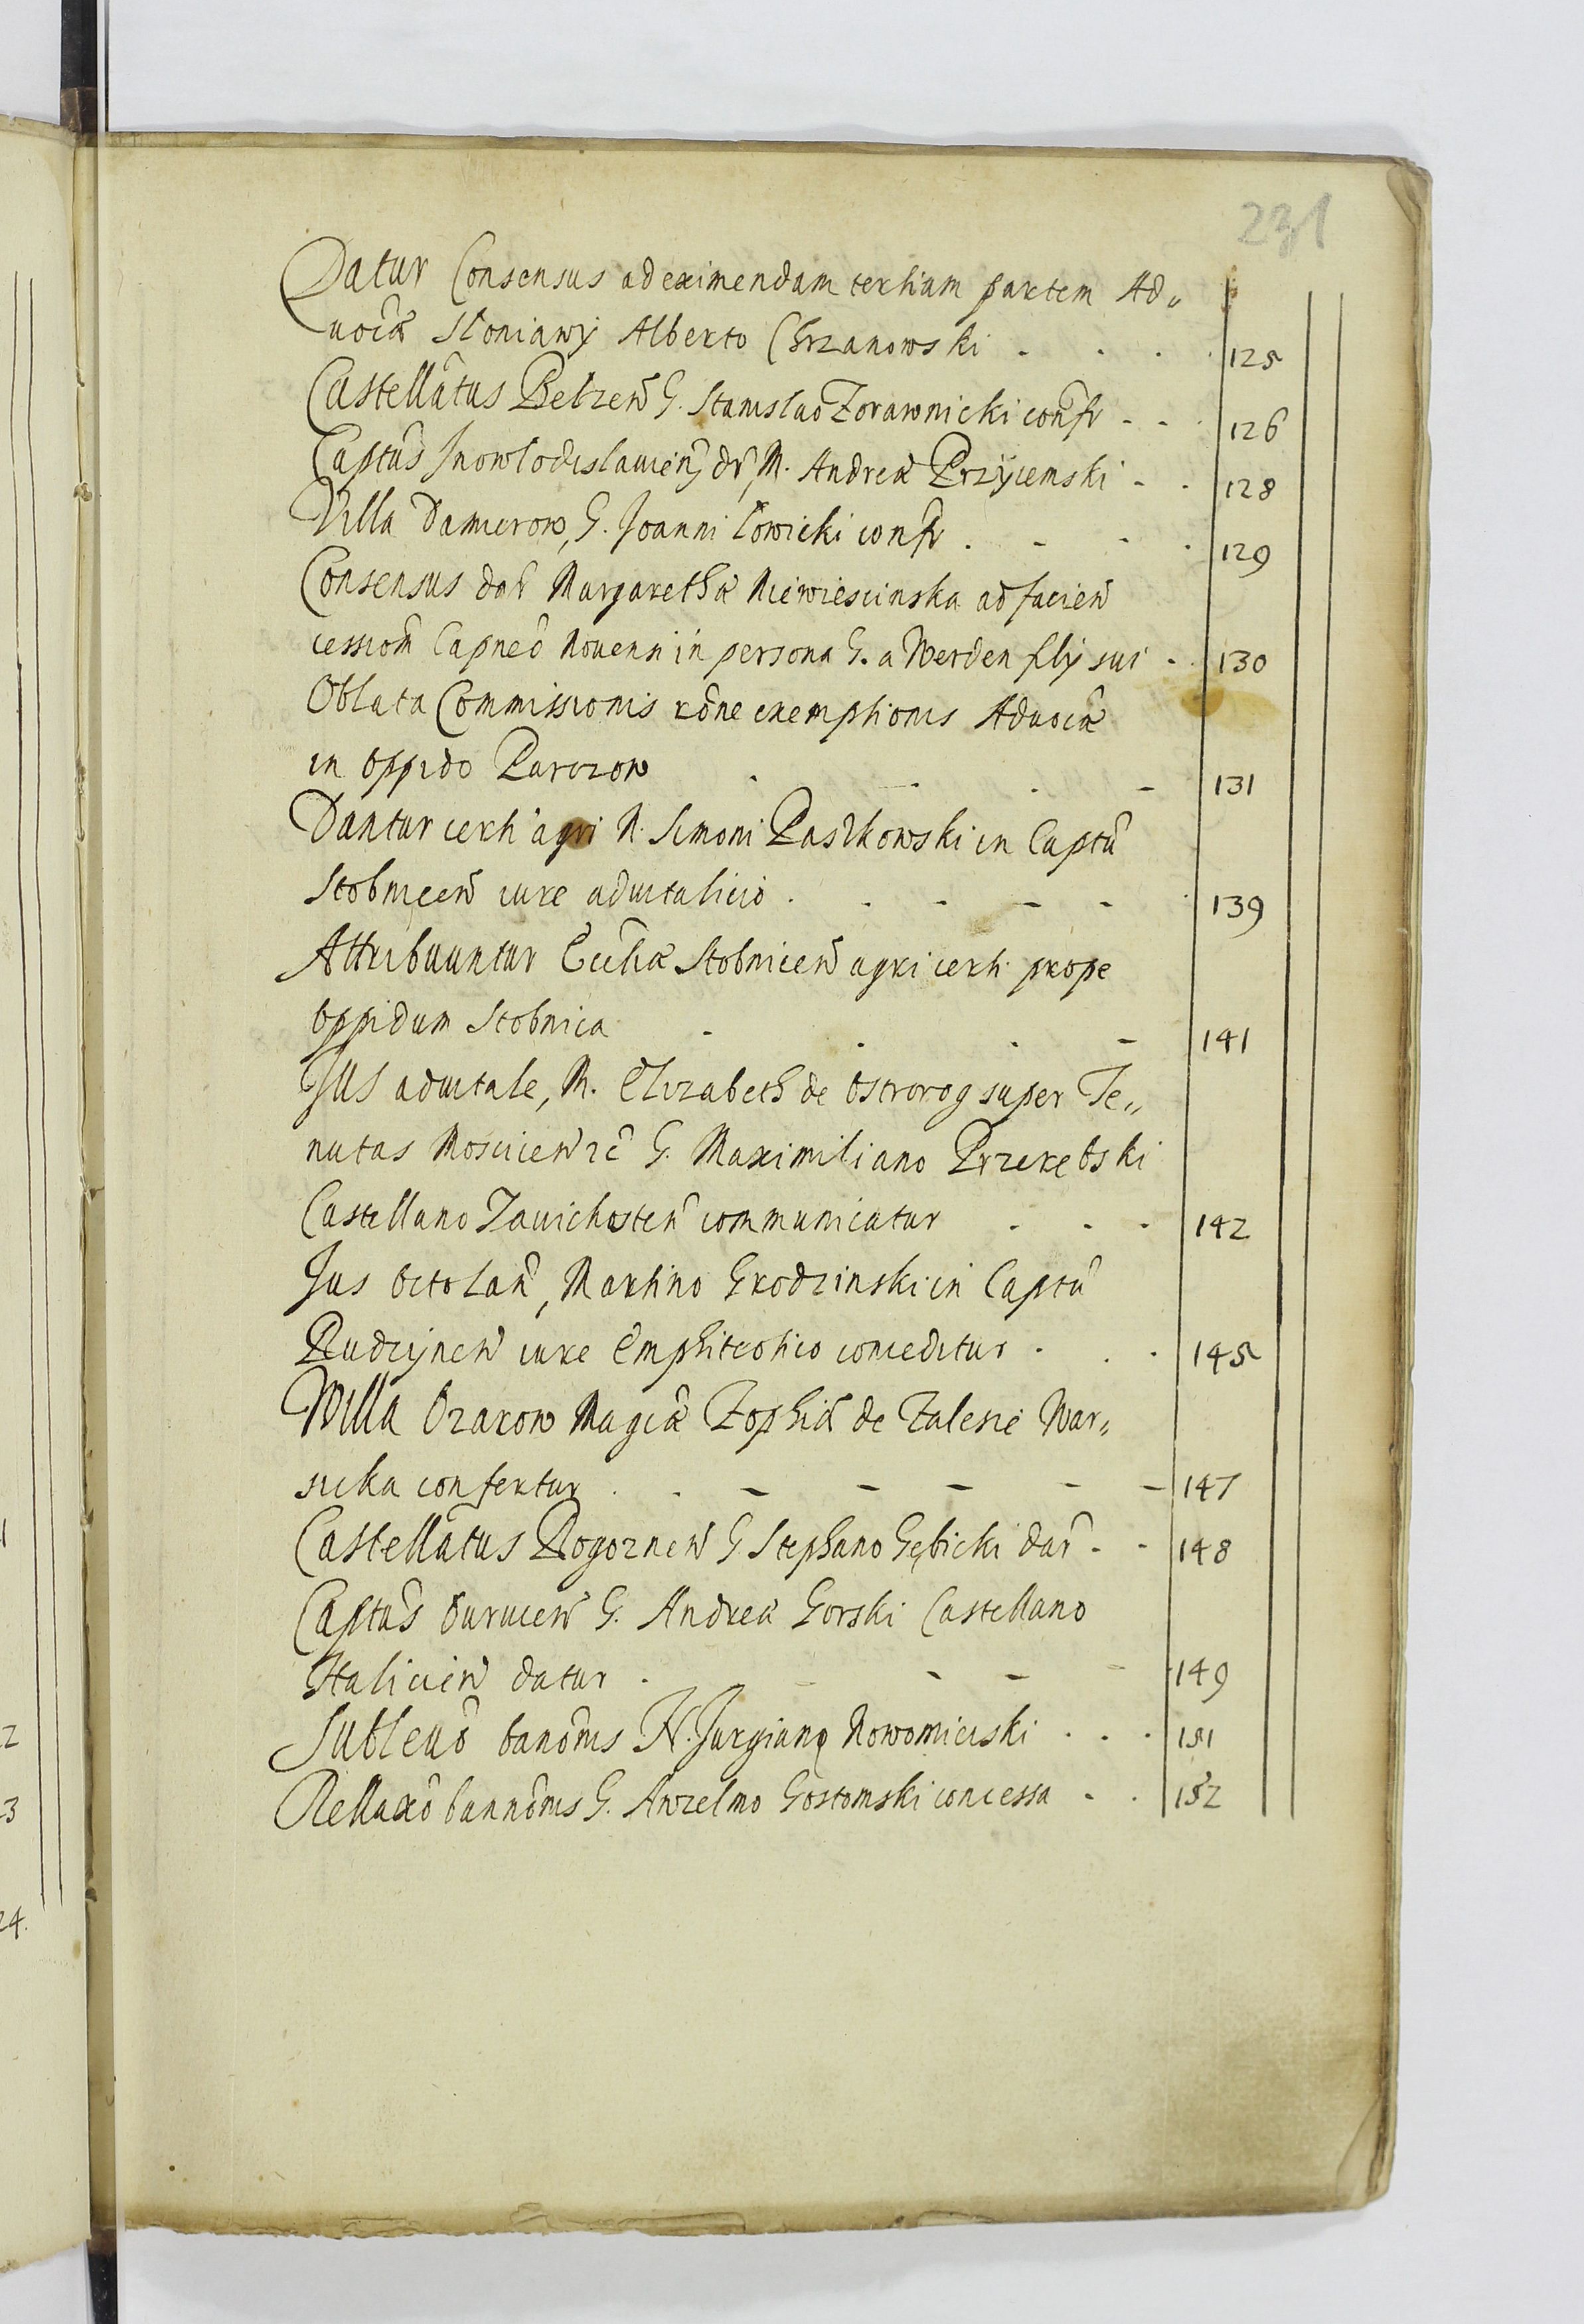 231
Datur Consensus ad eximendam tertiam partem Ad„
uociae Stoniawy Alberto Chrzanowski . . . . 125
Castellatus Belzen G. Stanislao Zorawnicki confr - - . 126
Captus Jnowlodislauien dr, M. Andreae Przyiemski - . 128
Villa Damierow, G. Joanni Lowicki confr . - . . 129
Consensus dar Margarethae Niewiescinska ad facien
cessiom Capneo Nouensi in persona G. a Werden fily sui . . 130
Oblata Commissionis rone exemptionis Aduociae
in oppido Parczow . . . - 131
Dantur certi agri N. Simoni Paszkowski in Captu
Stobnicen iure aduitalicio . . - - - . 139
Attribuuntur Eccliae Stobnicen agri certi prope
oppidum Stobnica . . . - 141
Jus aduitale, M. Elizabeth de Ostrorog super Te„
nutas Moscicen zc G. Maximiliano Przerebski
Castellano Zauichosten communicatur . . . 142
Jus octo Lan, Martino Grodzinski in Captu
Rudzynen iure Emphiteotico conceditur . . . 145
Willa Ozarow Magcae Zophiae de Zalesie War„
sicka confertur . . - - - - - 147
Castellatus Rogoznen G Stephano Gębicki dar - - 148
Captus Guricen G. Andreae Gorski Castellano
Haliciен datur . - - - - 149
Subleuo banonis N. Jurgiano Nowomieiski . . . 151
Rellaxo bannonis G. Anzelmo Gostomski concessa - . 152
1
2
3
24.